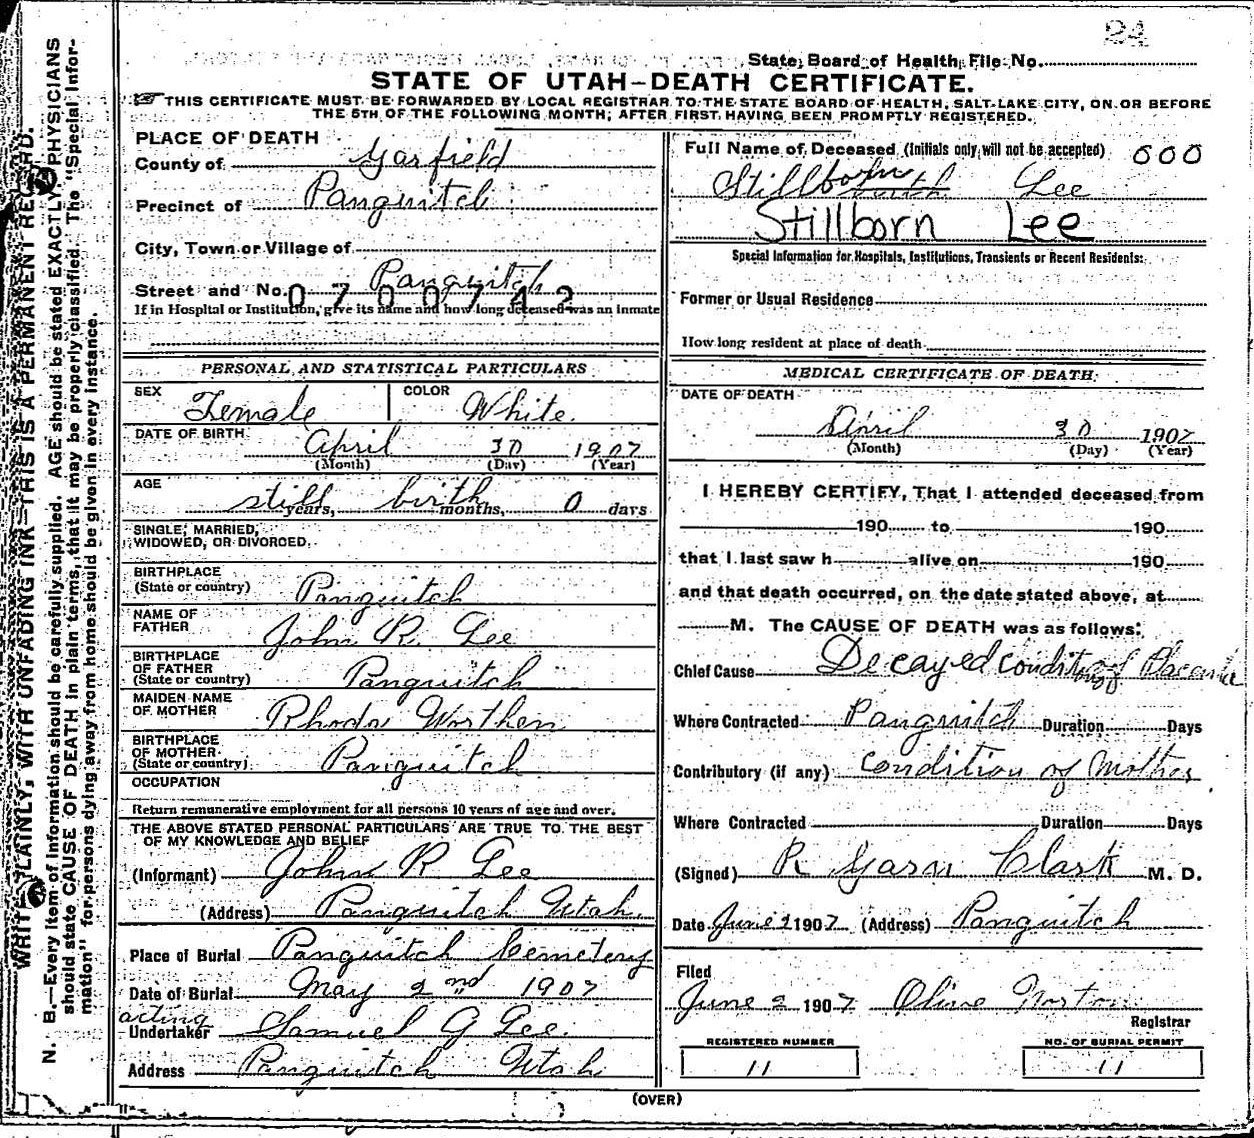 24
State Board of Health File No.
STATE OF UTAH-DEATH CERTIFICATE.
THIS CERTIFICATE MUST BE FORWARDED BY LOCAL REGISTRAR TO THE STATE BOARD OF HEALTH, SALT LAKE CITY, ON OR BEFORE
THE 5TH OF THE FOLLOWING MONTH; AFTER FIRST HAVING BEEN PROMPTLY REGISTERED.
WRITE PLAINLY, WITH UNFADING INK—THIS IS A PERMANENT RECORD.
N. B.—Every item of information should be carefully supplied. AGE should be stated EXACTLY. PHYSICIANS
should state CAUSE OF DEATH in plain terms, that it may be properly classified. The "Special Infor-
mation" for persons dying away from home should be given in every instance.
PLACE OF DEATH
County of Garfield
Precinct of Panguitch
City, Town or Village of
Panguitch
Street and No.
0700742
If in Hospital or Institution, give its name and how long deceased was an inmate
PERSONAL AND STATISTICAL PARTICULARS
SEX Female COLOR White.
DATE OF BIRTH April 30 1907
(Month) (Day) (Year)
AGE still years, birth months, 0 days
SINGLE, MARRIED,
WIDOWED, OR DIVORCED.
BIRTHPLACE
(State or country) Panguitch
NAME OF
FATHER John R. Lee
BIRTHPLACE
OF FATHER
(State or country) Panguitch
MAIDEN NAME
OF MOTHER Rhoda Worthen
BIRTHPLACE
OF MOTHER
(State or country) Panguitch
OCCUPATION
Return remunerative employment for all persons 10 years of age and over.
THE ABOVE STATED PERSONAL PARTICULARS ARE TRUE TO THE BEST
OF MY KNOWLEDGE AND BELIEF
(Informant) John R Lee
(Address) Panguitch Utah.
Place of Burial Panguitch Cemetery
Date of Burial May 2nd 1907
acting
Undertaker Samuel G Lee.
Address Panguitch Utah
Full Name of Deceased (Initials only will not be accepted) 000
Stillborn Lee
Stillborn Lee
Special Information for Hospitals, Institutions, Transients or Recent Residents:
Former or Usual Residence
How long resident at place of death
MEDICAL CERTIFICATE OF DEATH
DATE OF DEATH
April 30 1907
(Month) (Day) (Year)
I HEREBY CERTIFY, That I attended deceased from
190 to 190
that I last saw h alive on 190
and that death occurred, on the date stated above, at
M. The CAUSE OF DEATH was as follows:
Chief Cause Decayed condition of Placenta
Where Contracted Panguitch Duration Days
Contributory (if any) Condition of Mother
Where Contracted Duration Days
(Signed) R Garn Clark M. D.
Date June 1907 (Address) Panguitch
Filed
June 2 1907 Olive Norton
Registrar
REGISTERED NUMBER
11
NO. OF BURIAL PERMIT
11
(OVER)